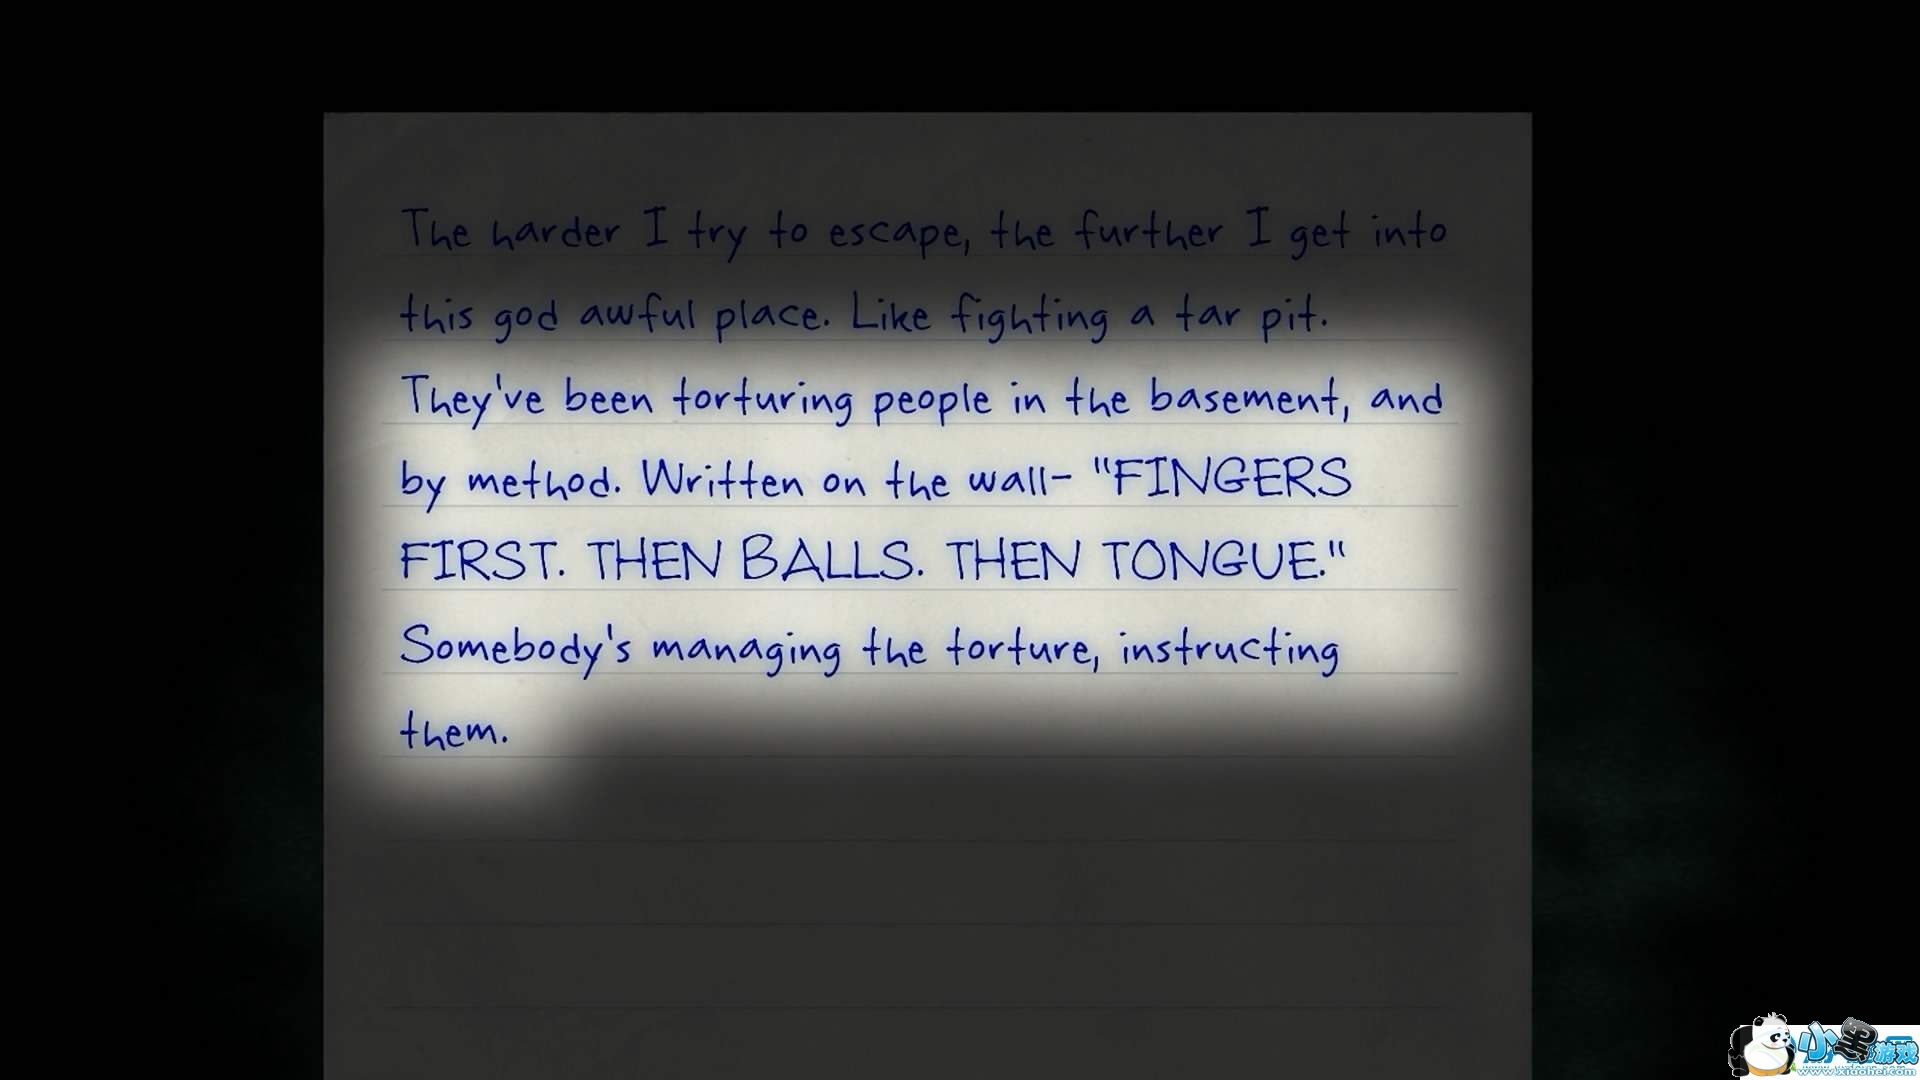 The harder I try to escape, the further I get into
this god awful place. Like fighting a tar pit.
They've been torturing people in the basement, and
by method. Written on the wall- "FINGERS
FIRST. THEN BALLS. THEN TONGUE."
Somebody's managing the torture, instructing
them.
小黑游戏
www.xidohei.com